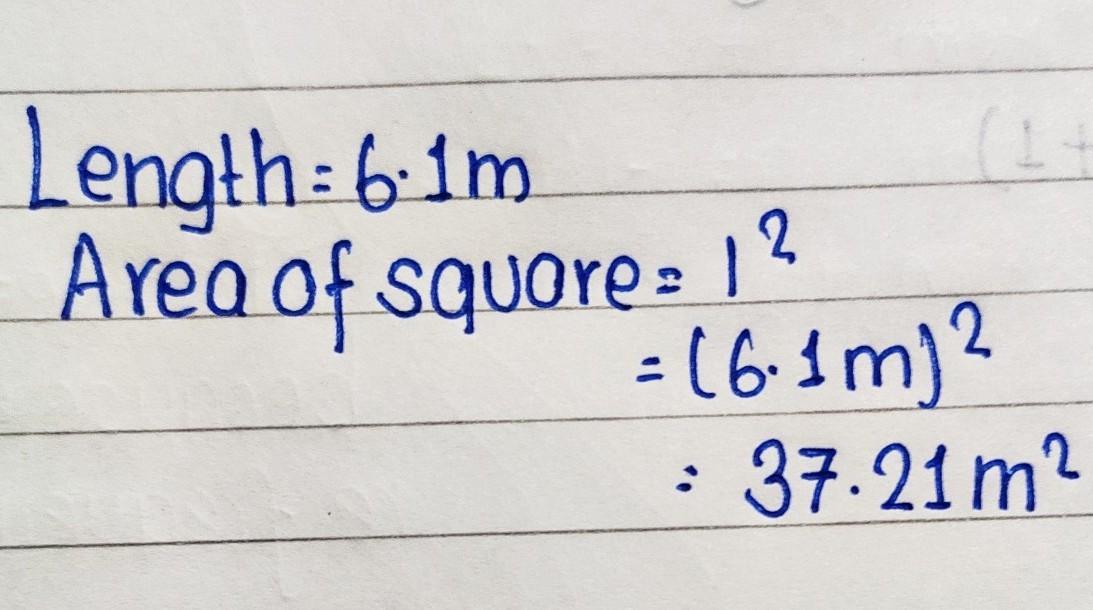 Length = 6.1m
Area of square = l²
= (6.1m)²
= 37.21m²
(1+